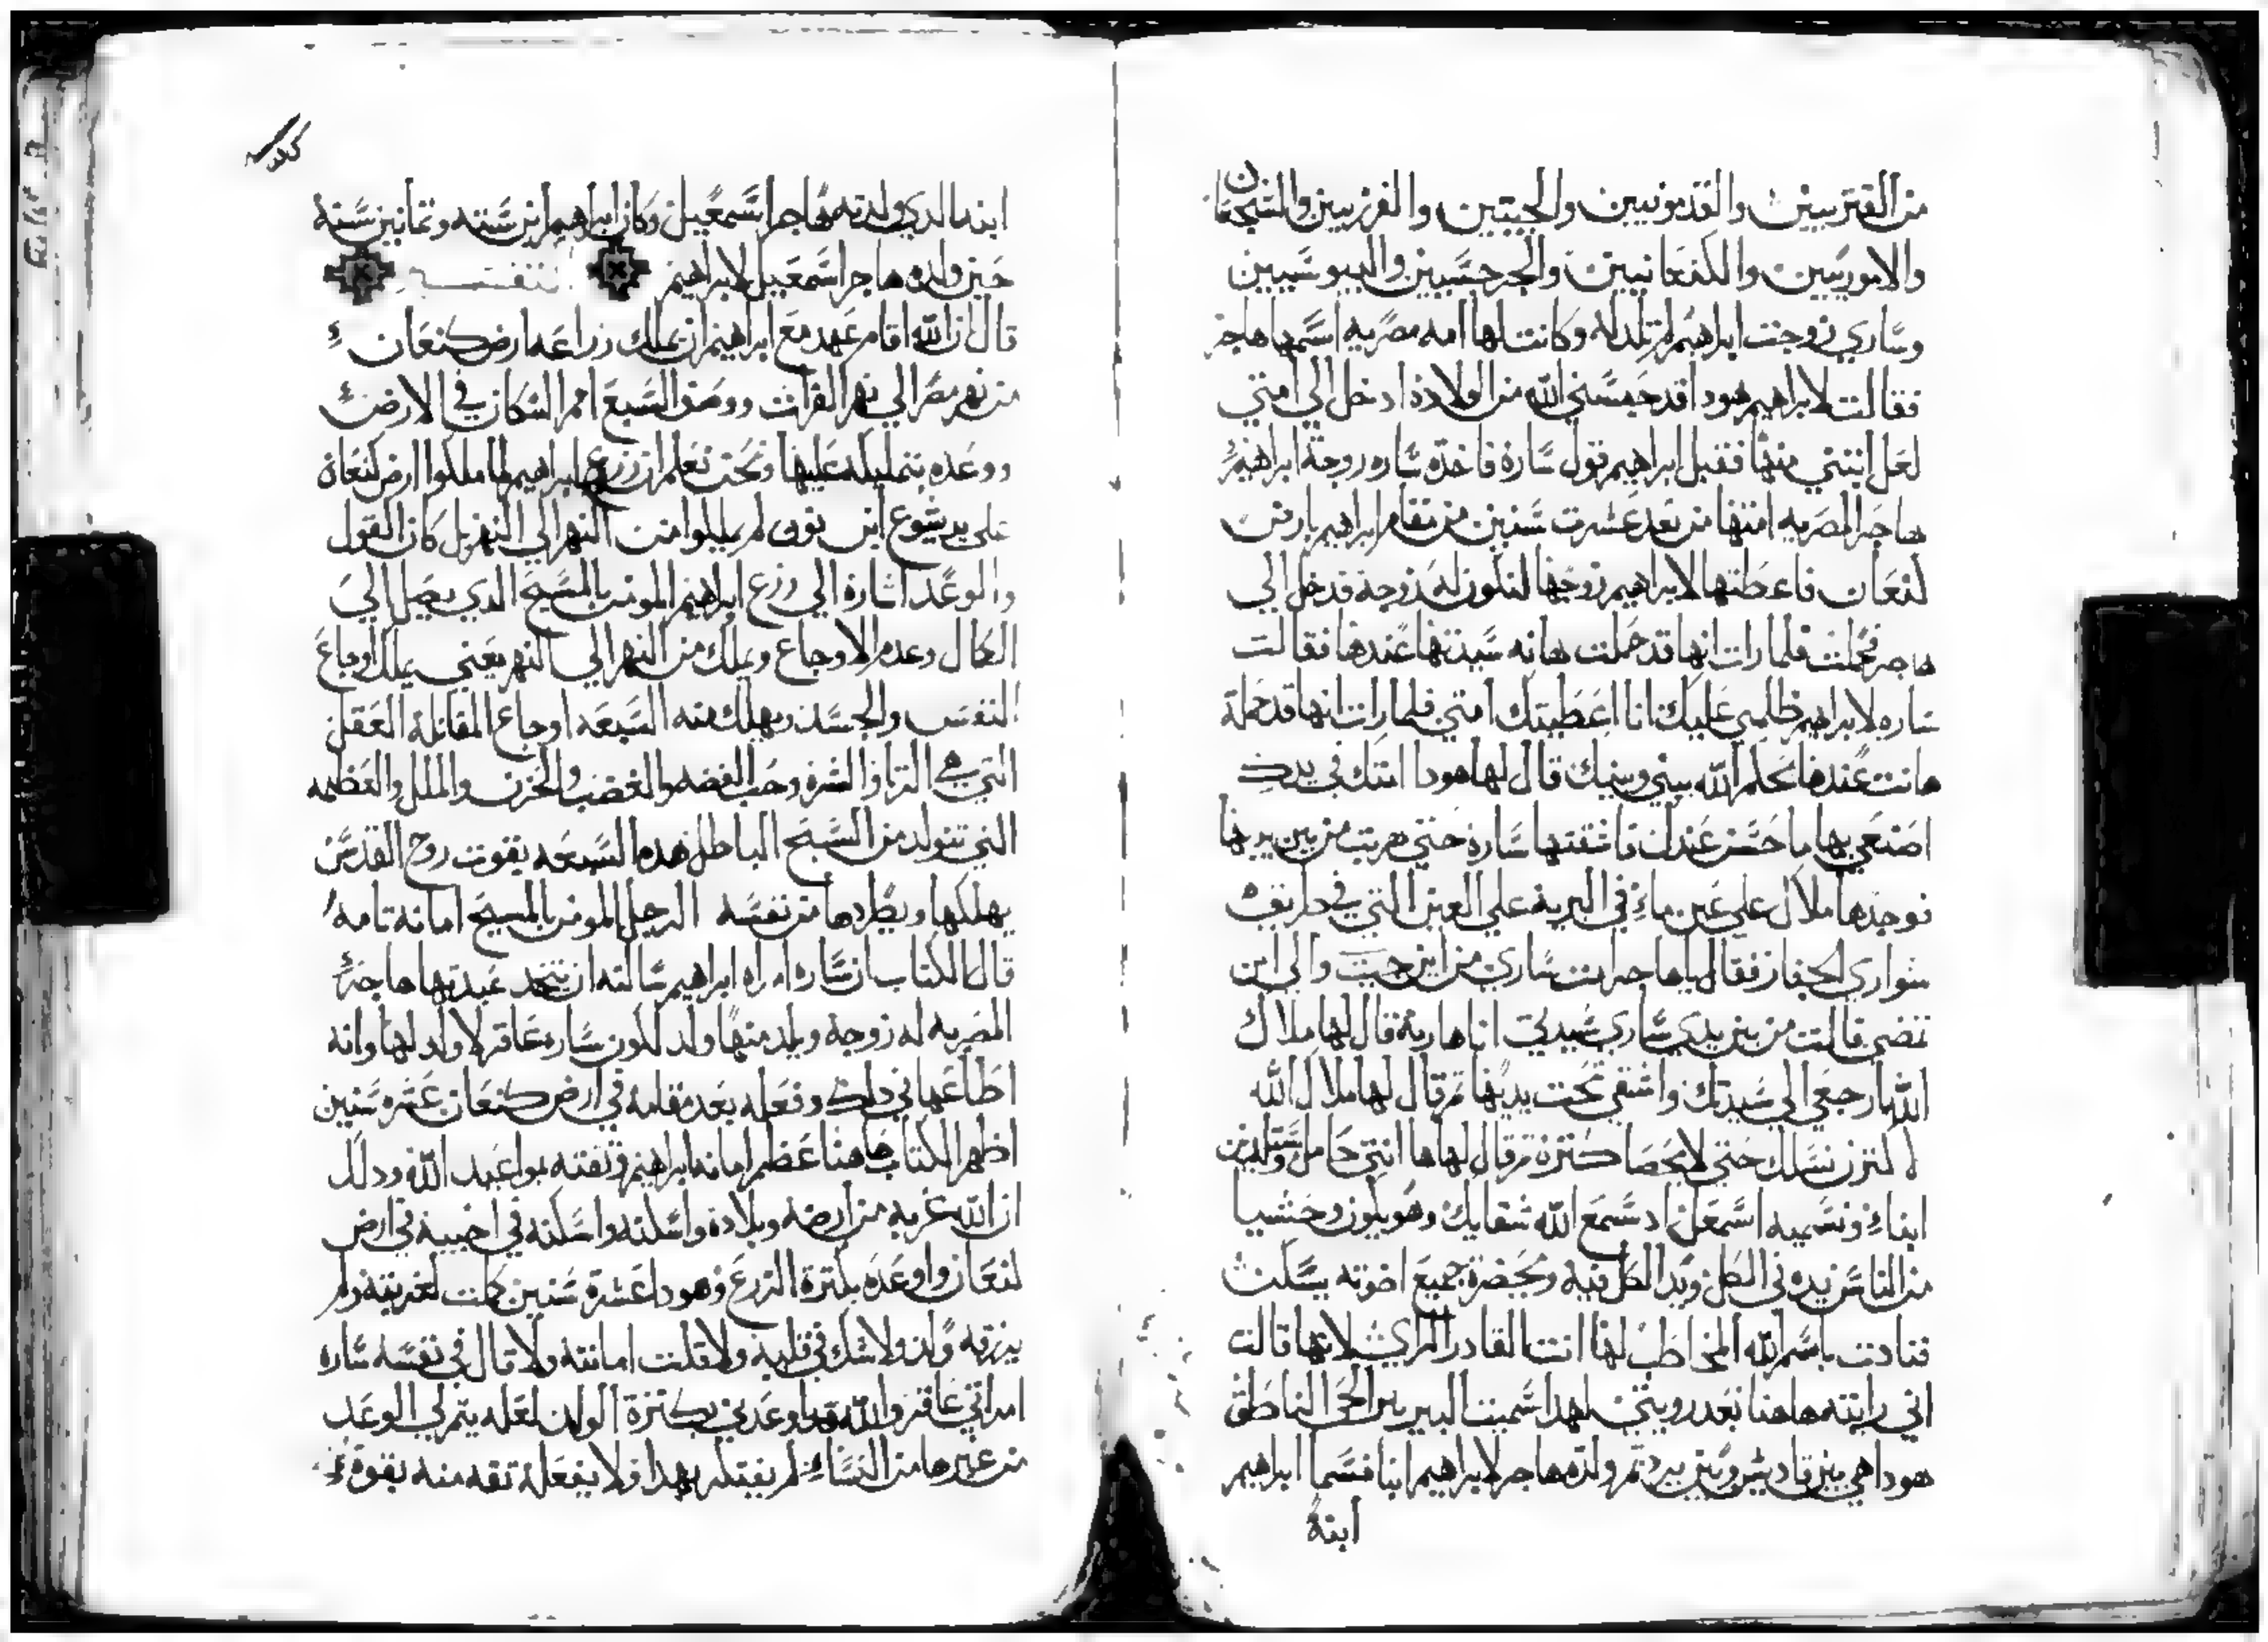 من القنرسين والقدمونيين والحيتيين والفرزيين والشجعان
والاموريين والكنعانيين والجرجسيين واليبوسيين
وساري زوجت ابراهيم لم تلد له وكانت لها امه مصريه اسمها هاجر
فقالت لابراهيم هودا قد حبسني الله من الولادة ادخل الي امتي
لعل ابتني منها فقبل ابراهيم قول سارة فاخدة ساره زوجة ابراهيم
هاجر المصريه امتها من بعد عشرت سنين من مقام ابراهيم بارض
كنعان فاعطتها لابراهيم زوجها لتكون له زوجة فدخل الي
هاجر فحملت فلما رات انها قد حملت هانه سيدتها عندها فقالت
ساره لابراهيم ظلمي عليك انا اعطيتك امتي فلما رات انها قد حملة
هانت عندها يحكم الله بيني وبينك قال لها هودا امتك في يدك
اصنعي بها ما حسن عندك فاشقتها سارة حتي هربت من بين يديها
فوجدها ملاك علي عين ماء في البرية علي العين التي في طريق
سواري الحفار فقال يا هاجر امت ساري من اين جيت والي اين
تمضي قالت من بين يدي ساري سيدتي انا هاربة قال لها ملاك
الله ارجعي الي سيدتك واشقي تحت يديها ثم قال لها ملاك الله
لاكترن نسلك حتي لا يحصا كترة ثم قال لها ها انتي حامل وستلدين
ابناء وتسميه اسمعيل اد سمع الله شقايك وهو يكون وحشيا
من الناس يده في الكل ويد الكل فيه وبحضرة جميع اخوته يسكن
فنادت باسم الله المخاطب لها انت القادر الراي لانها قالت
اني رايته هاهنا بعد رويتي لهدا سميت البير بير الحي الناطق
هودا هي بين قاديش وبين بيرد ثم ولدت هاجر لابراهيم ابنا فسما ابراهيم
ابنة
ابنه الدي ولدته هاجر اسمعيل وكان ابراهيم ابن سته وتمانين سنة
حين ولدة هاجر اسمعيل لابراهيم التفسير
قال ان الله اقام عهد مع ابراهيم ان يملك زراعه ارض كنعان
من نهر مصر الي نهر الفرات ووصف السبع امم السكان في الارض
ووعده بتمليكه عليها ونحن نعلم ان زرع ابراهيم لما ملكوا ارض كنعان
علي يد يشوع ابن نون لم يملكوا من النهر الي النهر بل كان القول
والوعد اشارة الي زرع ابراهيم المومن بالمسيح الدي يصل الي
الكمال وعدم الاوجاع ويملك من النهر الي النهر يعني يملك اوجاع
النفس والجسد ويهلك منه السبعه اوجاع المقاتلة العقل
التي هي الزنا والشره وحب الفضه والغضب والحزن والملل والعظمه
التي تتولد من السبح الباطل هده السبعه بقوت روح القدس
يهلكها ويطردها من نفسه الرجل المومن بالمسيح امانه تامه
قال الكتاب ان ساره امراه ابراهيم سالته ان يتخد عبدتها هاجر
المصريه له زوجة ويلد منها ولد لكون ساره عاقر لا ولد لها وانه
اطاعها في دلك وفعله بعد مقامه في ارض كنعان عشره سنين
اظهر الكتاب هاهنا عظم امانه ابراهيم وتقته بمواعيد الله ودلك
ان الله غربه من ارضه وبلادة واسكنه في اجنبية في ارض
كنعان واوعده بكترة الزرع وهودا عشرة سنين كملت لغربته ولم
يرزقه ولد ولا شك في قلبه ولا قلت امانته ولا قال في نفسه ساره
امراتي عاقر والله قد اوعدني بكترة الولد لعله يتم لي الوعد
من غيرها من النساء لم يفتكر بهدا ولا يفعله تقه منه بقوة